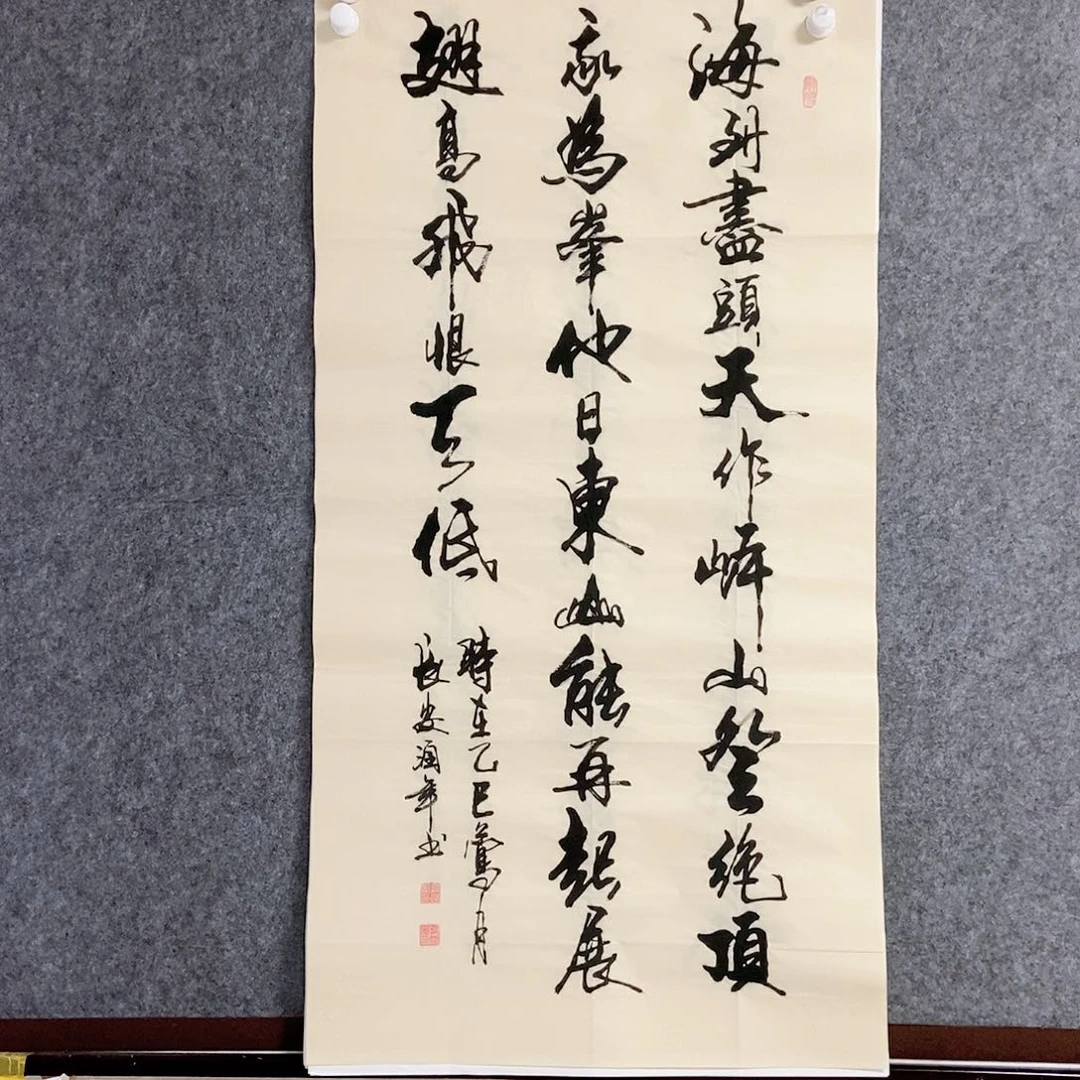 海到盡頭天作岸山登絕頂
我為峯他日東山能再起展
翅高飛恨天低
時在乙巳月
長安年书